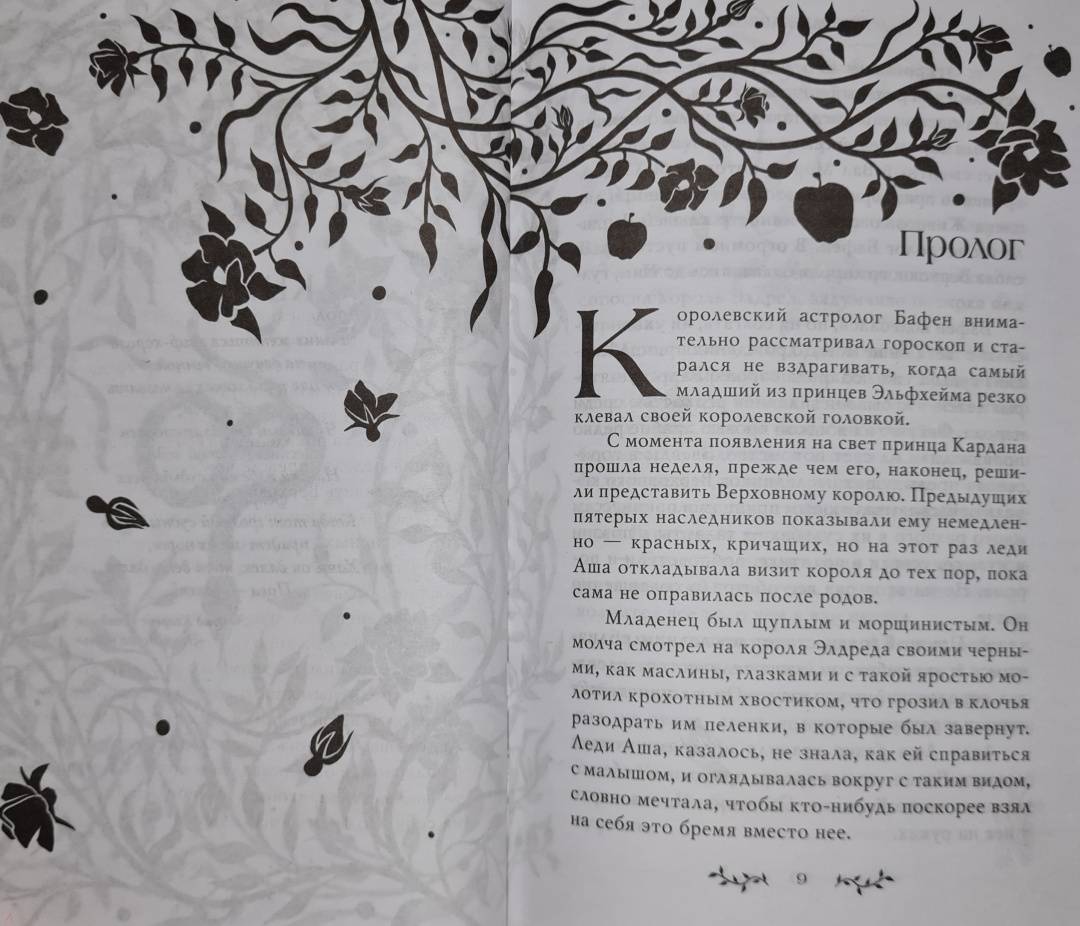 Пролог
Королевский астролог Бафен внима-
тельно рассматривал гороскоп и ста-
рался не вздрагивать, когда самый
младший из принцев Эльфхейма резко
клевал своей королевской головкой.
С момента появления на свет принца Кардана
прошла неделя, прежде чем его, наконец, реши-
ли представить Верховному королю. Предыдущих
пятерых наследников показывали ему немедлен-
но — красных, кричащих, но на этот раз леди
Аша откладывала визит короля до тех пор, пока
сама не оправилась после родов.
Младенец был щуплым и морщинистым. Он
молча смотрел на короля Элдреда своими черны-
ми, как маслины, глазками и с такой яростью мо-
лотил крохотным хвостиком, что грозил в клочья
разодрать им пеленки, в которые был завернут.
Леди Аша, казалось, не знала, как ей справиться
с малышом, и оглядывалась вокруг с таким видом,
словно мечтала, чтобы кто-нибудь поскорее взял
на себя это бремя вместо нее.
9